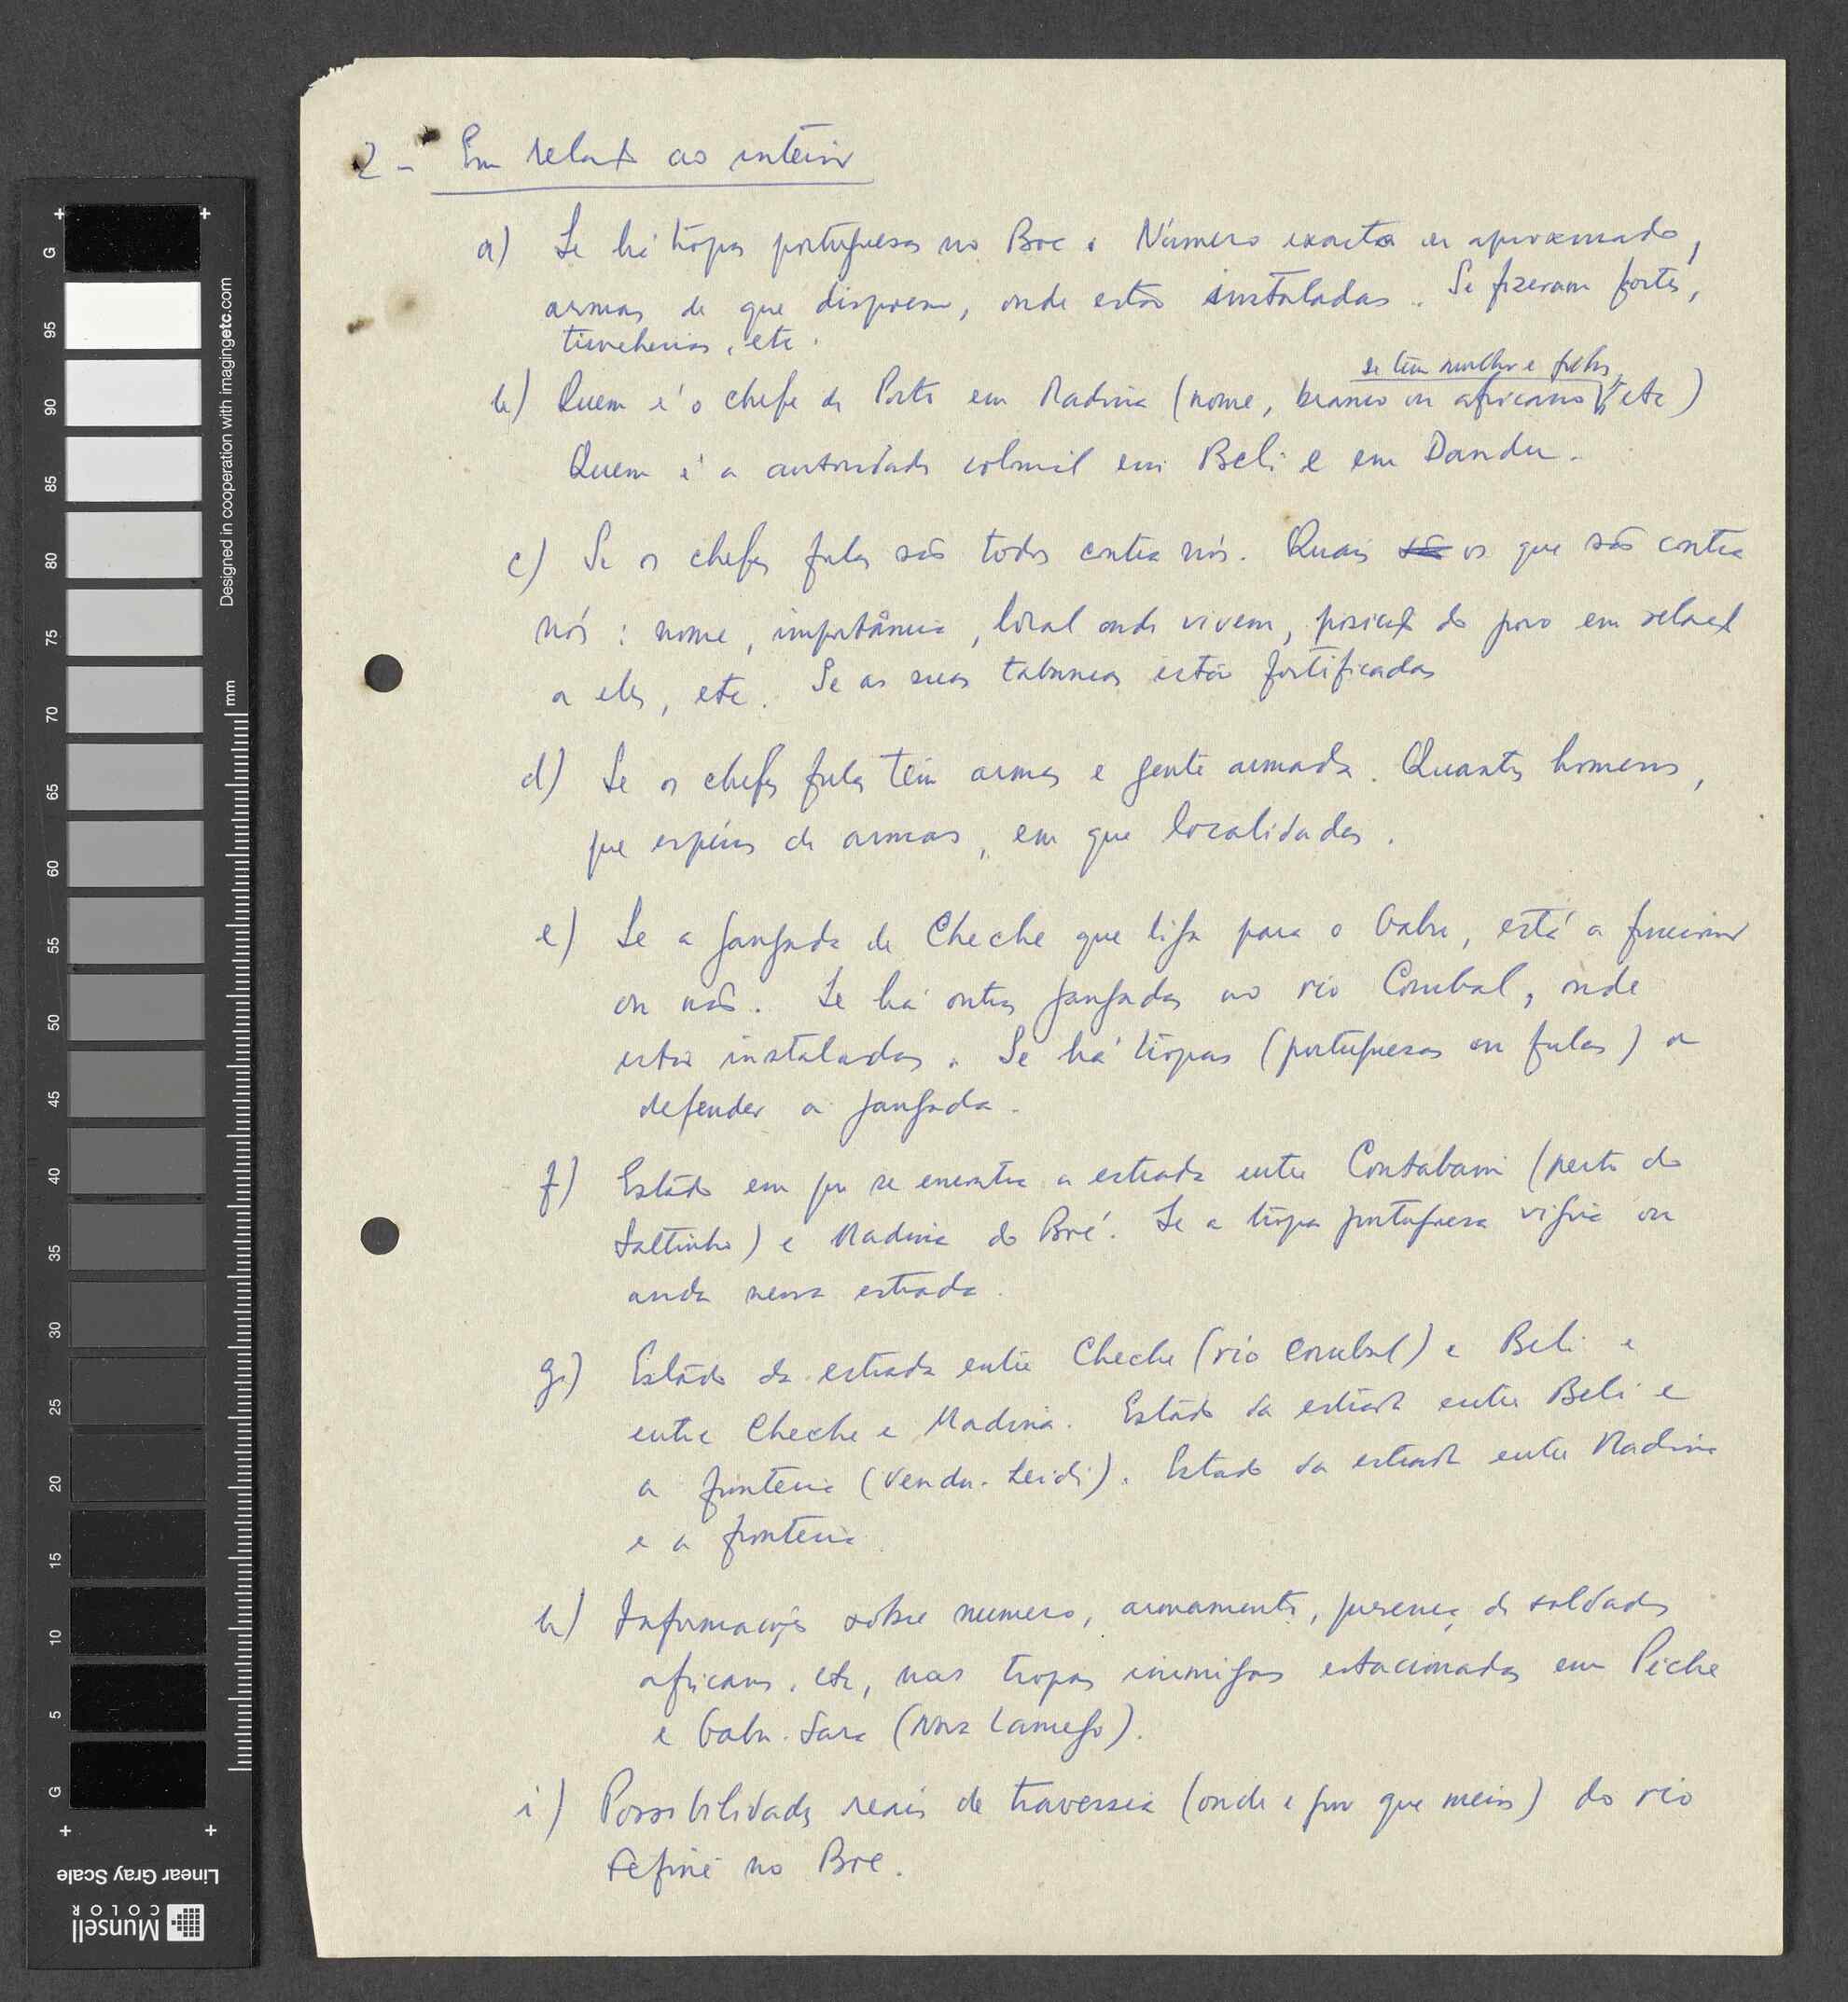 2 - Em relaç᷉ ao interior
a) Se há tropas portuguesas no Boe. Número exacto ou aproximado,
armas de que dispoem, onde estão instaladas. Se fizeram fortes,
trincheiras, etc.
se têm mulher e filhos,
b) Quem é o chefe de Posto em Madina (nome, branco ou africano, etc)
Quem é a autoridade colonial em Beli e em Dandu.
c) Se os chefes fulas são todos contra nós. Quais os que são contra
nós: nome, importância, local onde vivem, posição do povo em relação
a eles, etc. Se as suas tabancas estão fortificadas
d) Se os chefes fulas têm armas e gente armada. Quantos homens,
que espécies de armas, em que localidades.
e) Se a jangada de Cheche que liga para o Gabu, está a funcionar
ou não. Se há outras jangadas no rio Corubal, onde
estão instaladas. Se há tropas (portuguesas ou fulas) a
defender a jangada.
f) Estado em que se encontra a estrada entre Contabani (perto do
Saltinho) e Madina do Boé. Se a tropa portuguesa vigia ou
anda nessa estrada.
g) Estado da estrada entre Cheche (rio Corubal) e Beli e
entre Cheche e Madina. Estado da estrada entre Beli e
a fronteira (Vendu-Leidi). Estado da estrada entre Madina
e a fronteira.
h) Informações sobre numero, armamento, presença de soldados
africanos, etc, nas tropas inimigas estacionadas em Piche
e Gabu-Sara (Nova Lamego).
i) Possibilidades reais de travessia (onde e por que meios) do rio
Fefiné no Boe.
G
95
90
85
80
75
70
65
60
55
50
45
40
35
30
25
20
15
10
5
G
mm
Designed in cooperation with imagingetc.com
Linear Gray Scale
Munsell
COLOR